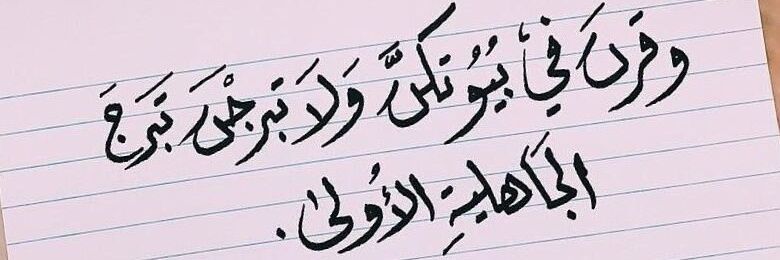 وقرنَ في بُيُوتكنَّ وَلاَ تبرجْنَ تَبَرجَ
الجَاهليةِ الأُولىٰ.